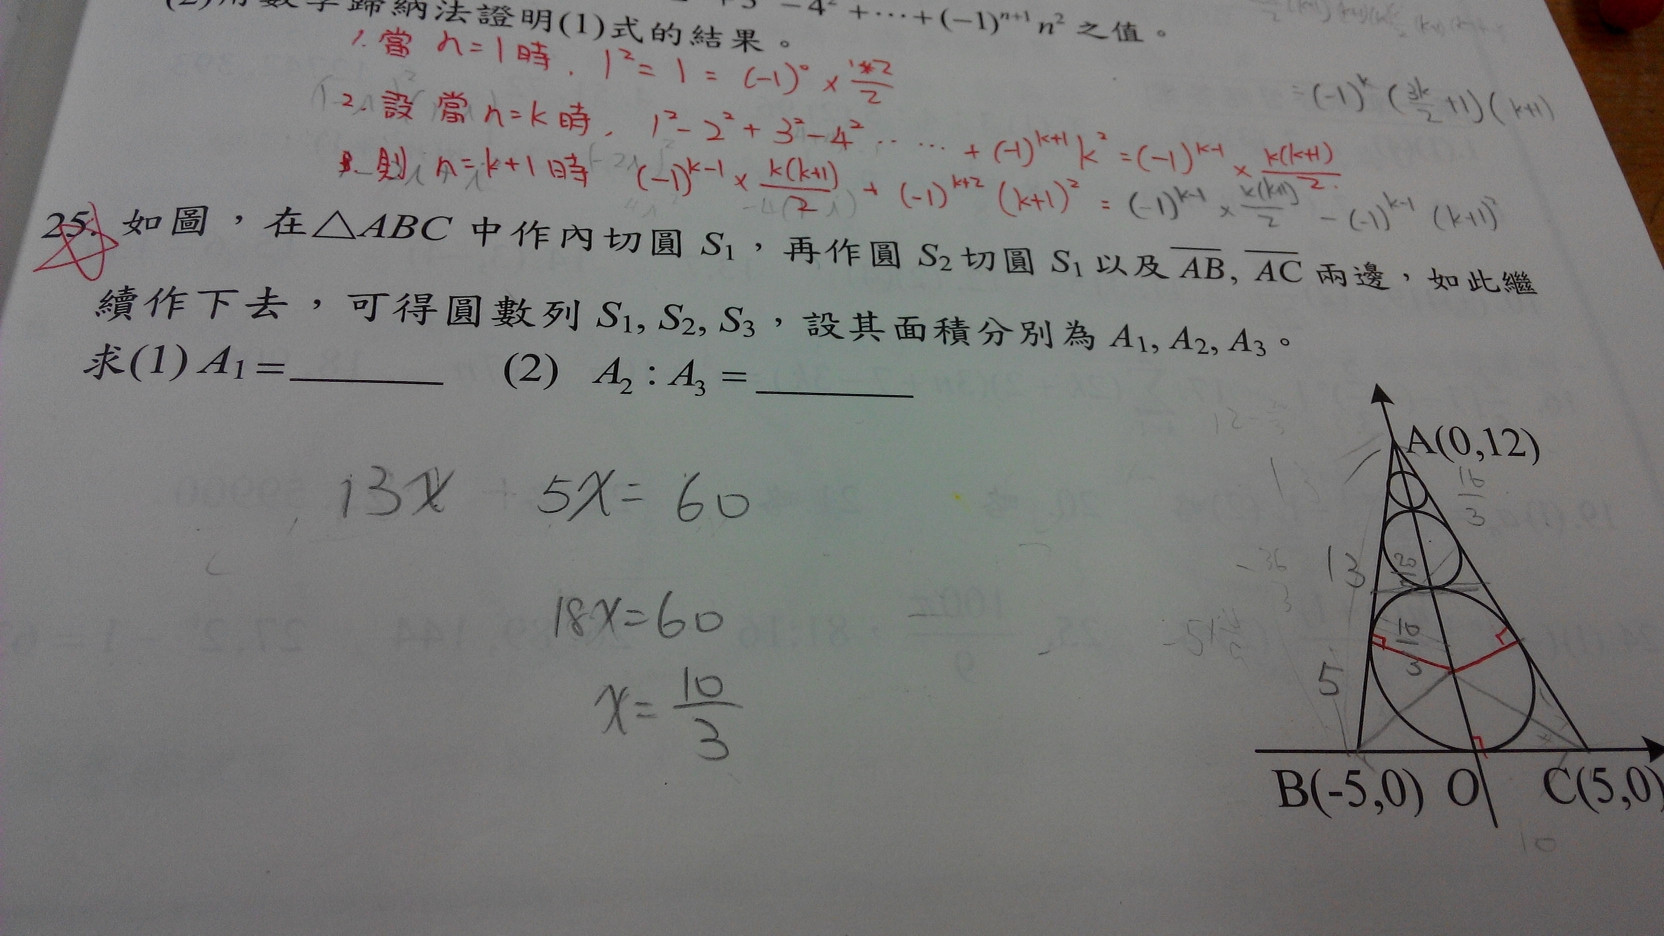 (2)用數學歸納法證明(1)式的結果。
−4² +⋯+(−1)ⁿ⁺¹ n² 之值。
1. 當 n=1時, 1²=1=(-1)⁰×1×2/2
=(-1)ᵏ(3k/2+1)(k+1)
2. 設當 n=k時, 1²-2²+3²-4²⋯⋯+(-1)ᵏ⁺¹k²=(-1)ᵏ⁻¹×k(k+1)/2
3. 則 n=k+1時 (-1)ᵏ⁻¹×k(k+1)/2+(-1)ᵏ⁺²(k+1)²=(-1)ᵏ⁻¹×k(k+1)/2-(-1)ᵏ⁻¹(k+1)²
25. 如圖,在△ABC 中作內切圓 S₁,再作圓 S₂切圓 S₁以及 AB, AC 兩邊,如此繼
續作下去,可得圓數列 S₁, S₂, S₃,設其面積分別為 A₁, A₂, A₃。
求(1) A₁=______ (2) A₂ : A₃ =______
A(0,12)
16/3
13x 5x=60
13
18x=60
10/3
x=10/3
5
B(-5,0) O C(5,0)
10